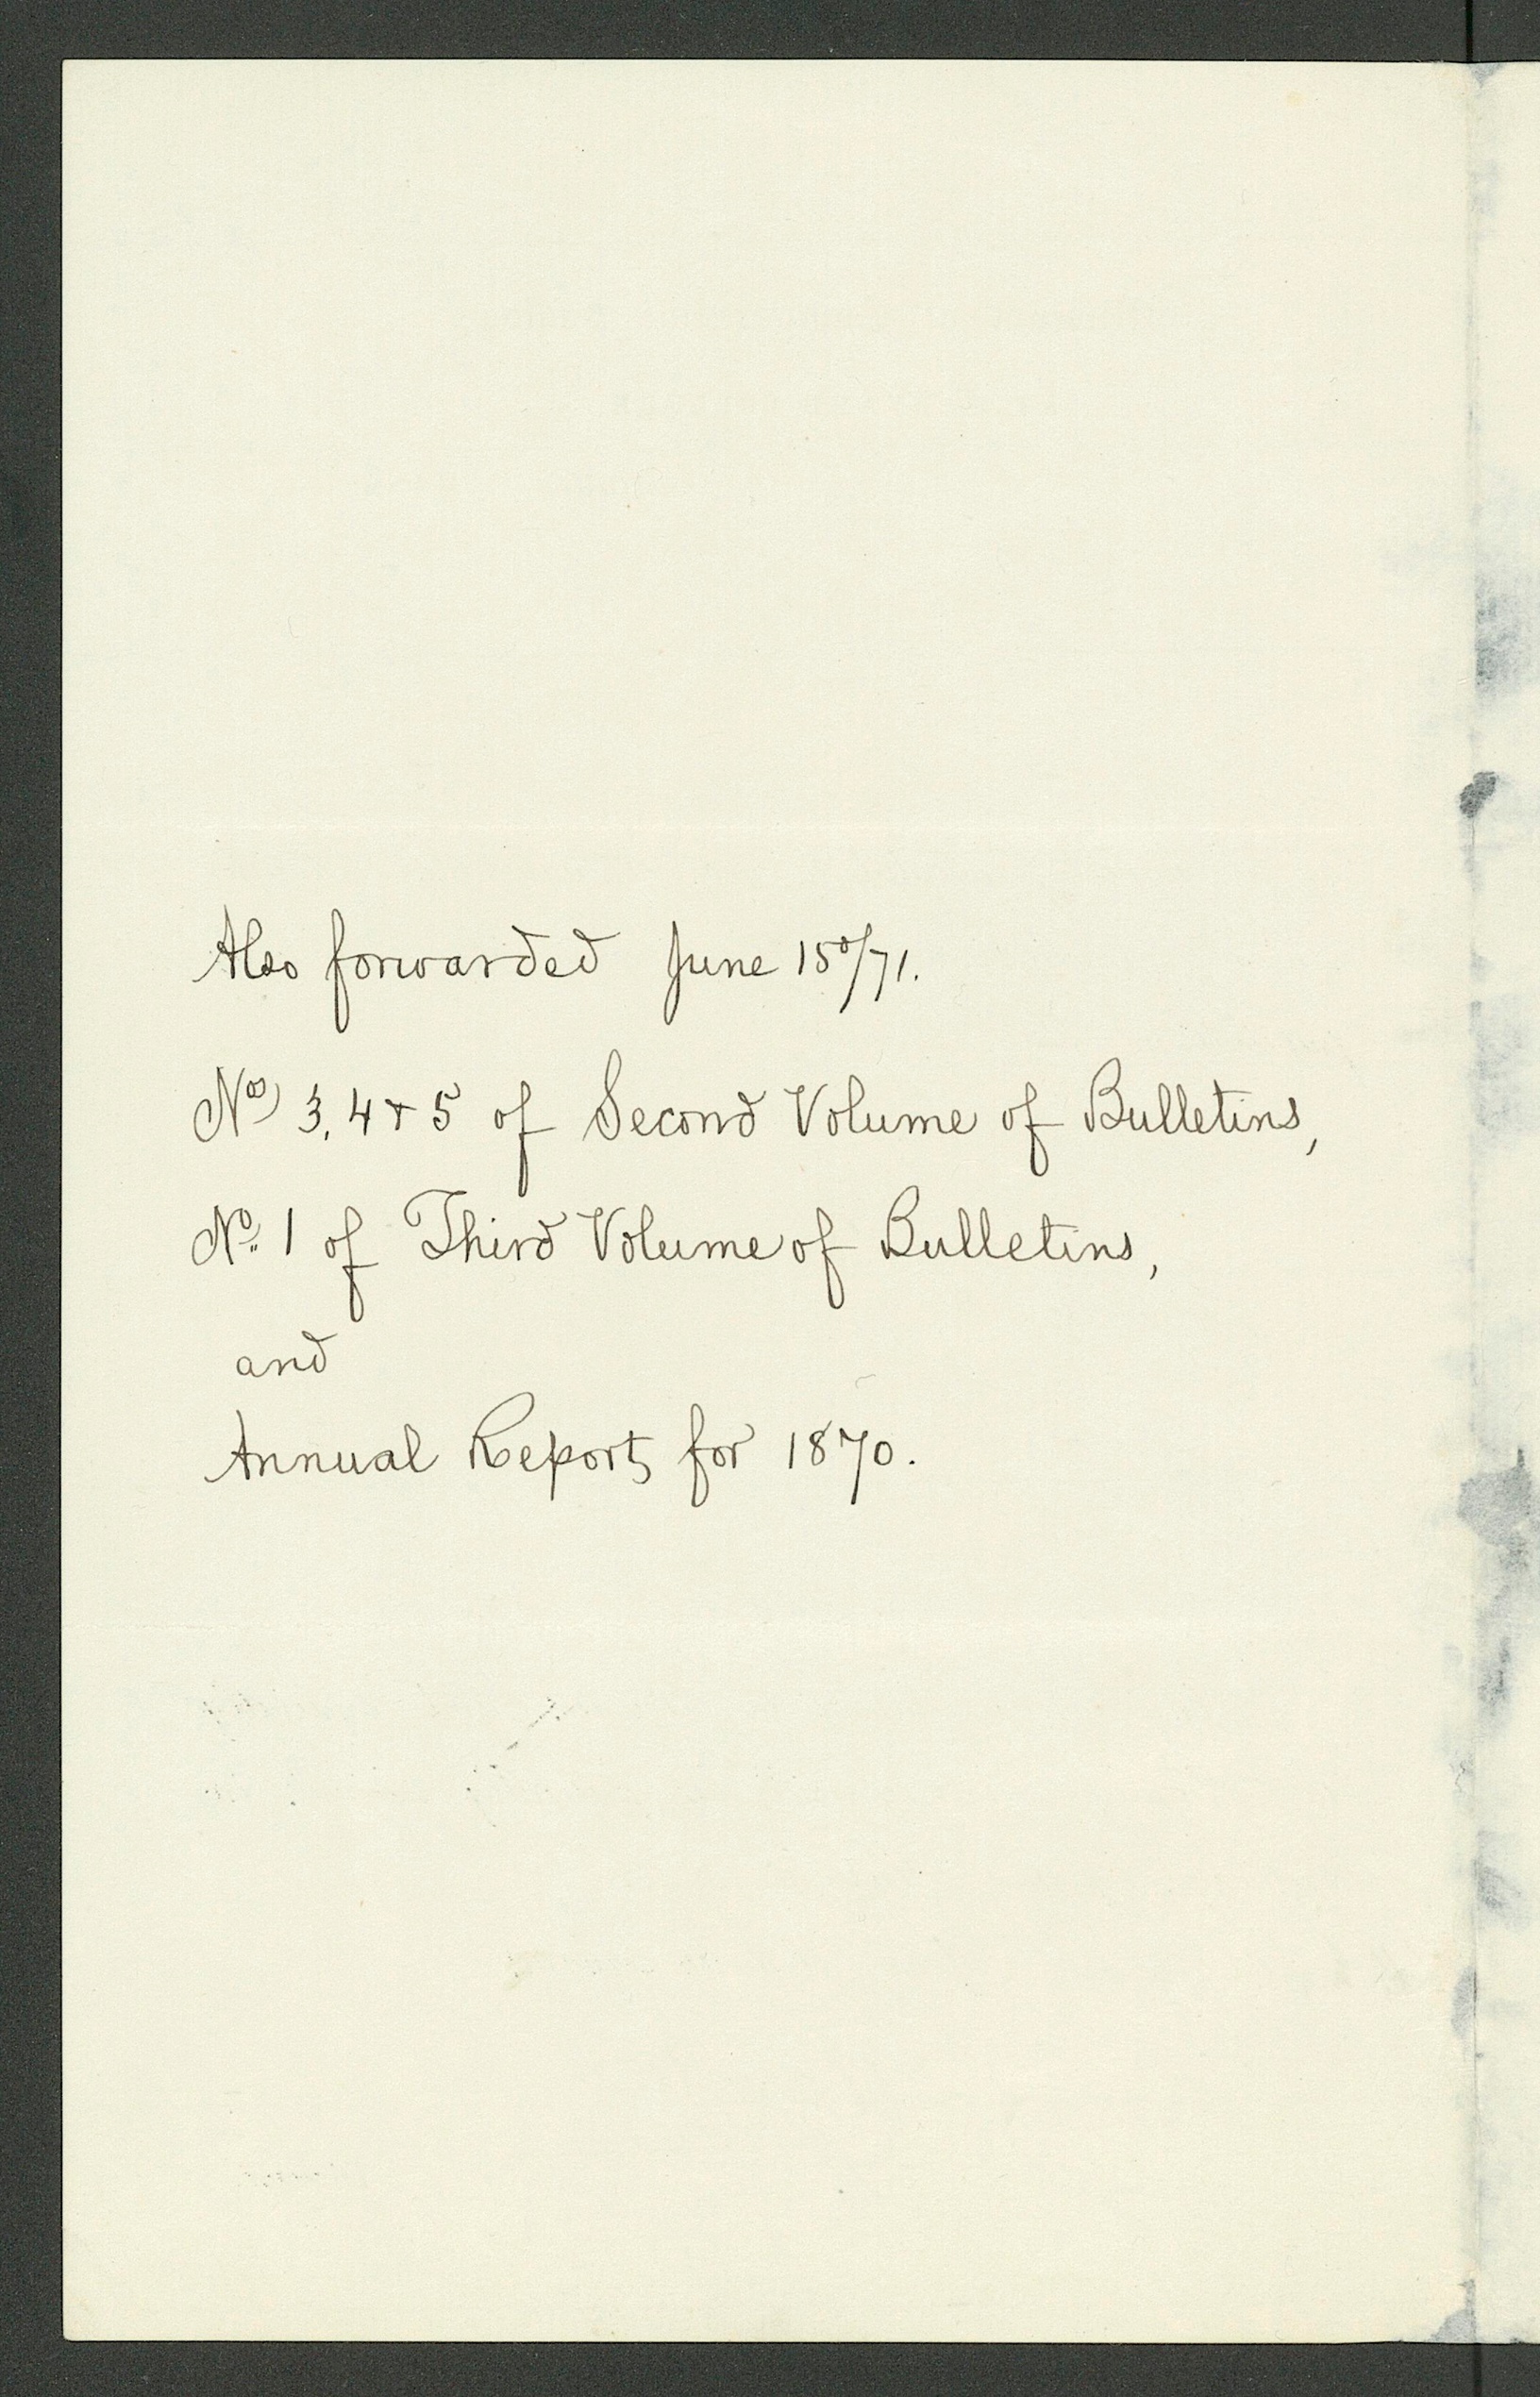 Also forwarded June 15º/71.
Nos 3, 4 + 5 of Second Volume of Bulletins,
Nº 1 of Third Volume of Bulletins,
and
Annual Report, for 1870.